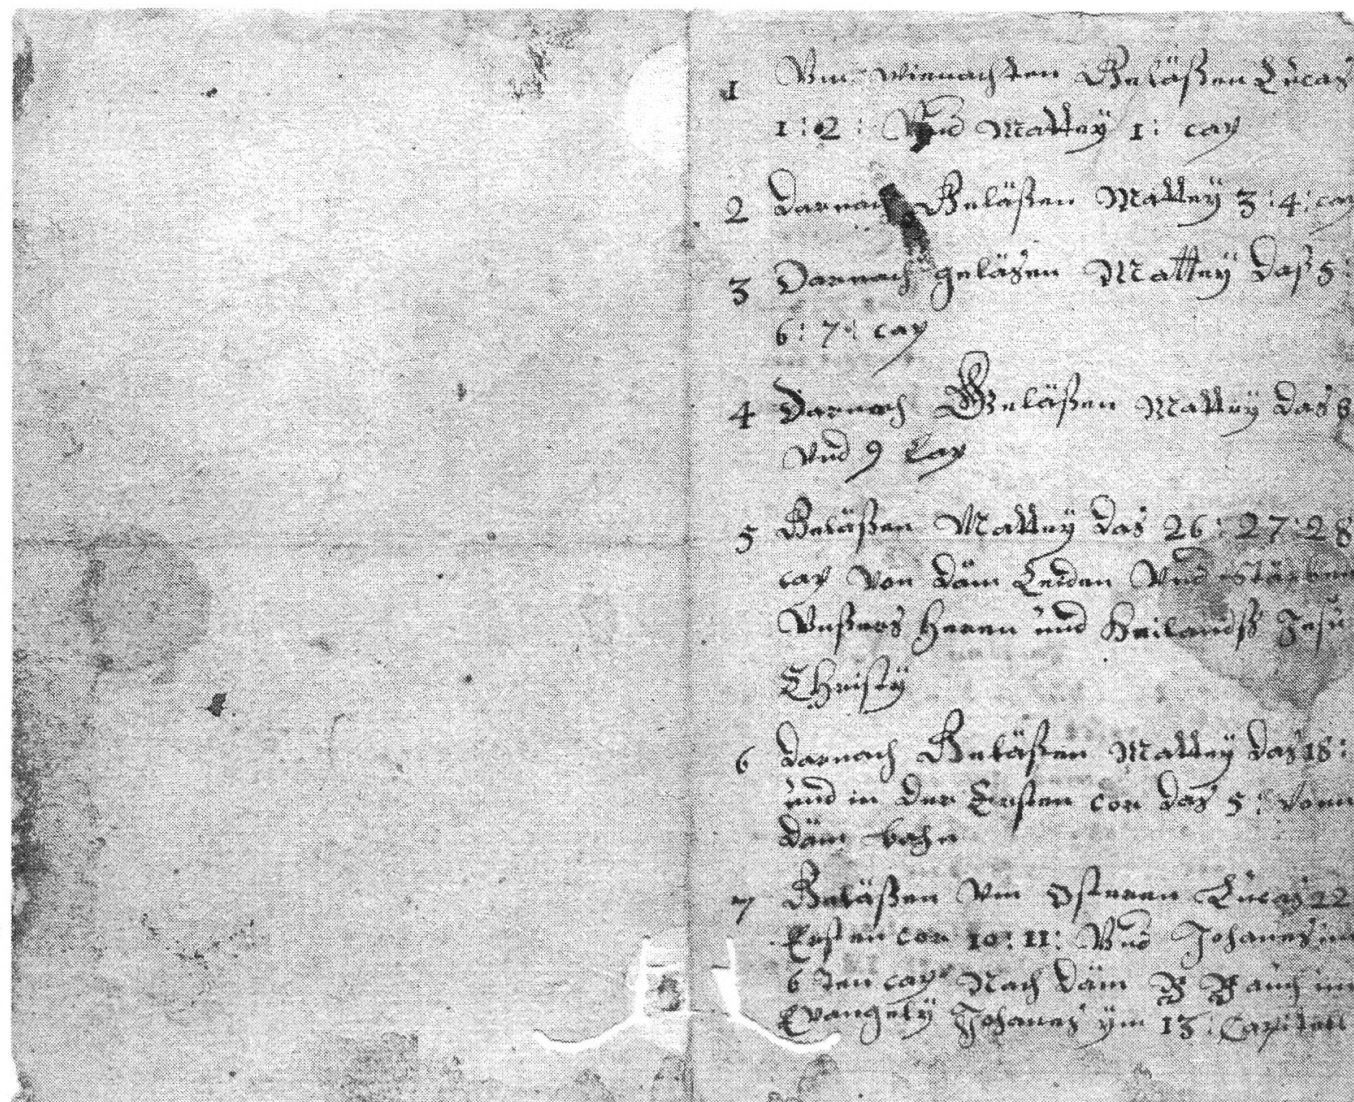 1 Vm wienachten Geläßen Lucas
1 : 2 : Vnd Mattey 1 : cap
2 darnach Geläßen Mattey 3 : 4 : cap
3 Darnach geläsen Mattey das 5 :
6 : 7 : cap
4 Darnach Geläßen Mattey das 8
vnd 9 Cap
5 Geläßen Mattey das 26 : 27 : 28
cap Von däm Leiden Vnd Stärben
Vnßers heren und Heilandß Jesu
Christÿ
6 darnach Geläßen Mattey das 18 :
und in der Ersten cor das 5 : Vonn
däm
7 Geläßen Vm Osteren Lucas 22
Ersten cor 10 : 11 : Vnd Johanes im
6 ten cap Nach däm B B auch im
Evangely Johanes ÿm 13 : Capitell